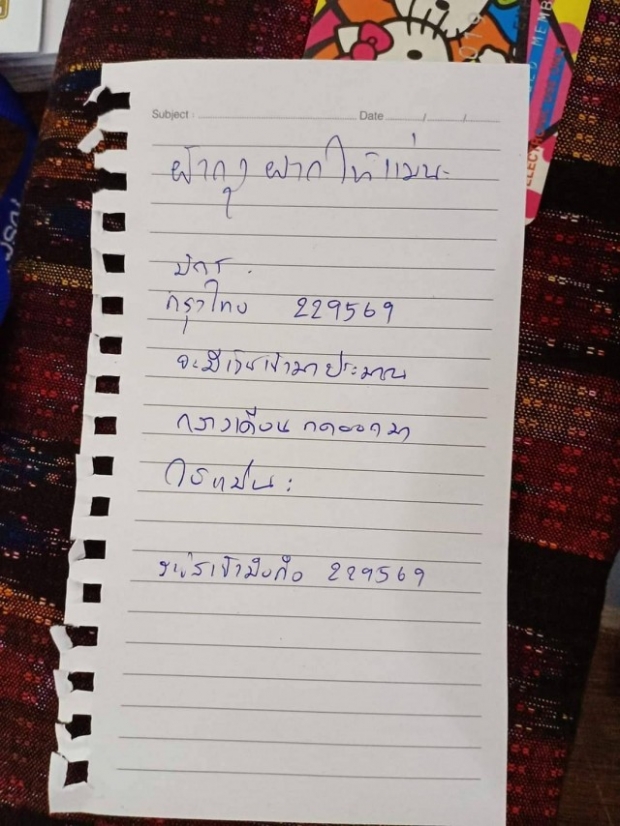 2019
MEMB
ELECTRON
USC
Subject : Date / /
ฝากให้แม่นะ
บัตร.
กรุงไทย 229569
จะมีเงินเข้ามาประมาณ
กลางเดือน กดออกมา
ใช้หนี้นะ
รหัสเข้ามือถือ 229569